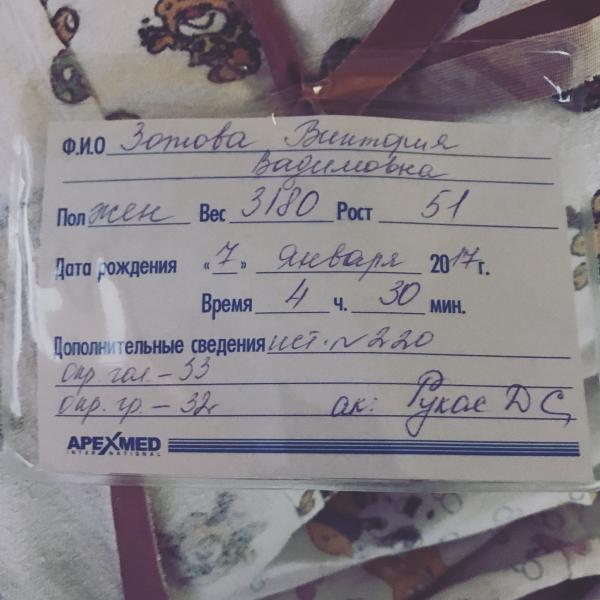 Ф.И.О Зотова Виктория
Вадимовна
Пол жен Вес 3180 Рост 51
Дата рождения «7» января 2017 г.
Время 4 ч. 30 мин.
Дополнительные сведения ист. N 220
окр. гол. – 33
окр. гр. – 32 ак: Рукас ДС
APEXMED
INTERNATIONAL